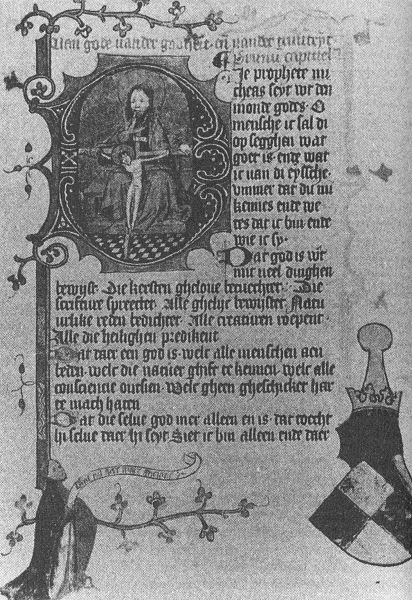 Van gode vander godheit en vander triniteyt
Die prophete mi
cheas seyt wt den
monde gods · O
mensche ic sal di
op segghen wat
goet is · ende wat
ic van di eyssche ·
ummer dat du mi
kennes ende we
tes dat ic bin ende
wie ic sy ·
Dat god is wert
mit veel dinghen
bewyst · Die kersten gheloue betuechtet · Die
scrifture spreectet · Alle ghelue bewyster Natu
urlike reden bedichtet · Alle creaturen roepent ·
Alle die heilighen predikent
Dat daer een god is · welc alle menschen aen
beden · welc die natuer ghift te kennen · welc alle
consciencie ontsien · Welc gheen gheschicket har
te mach haten
Dat die selue god mer alleen en is · dat toecht
hi selue daer hi seyt Siet ic bin alleen ende daer